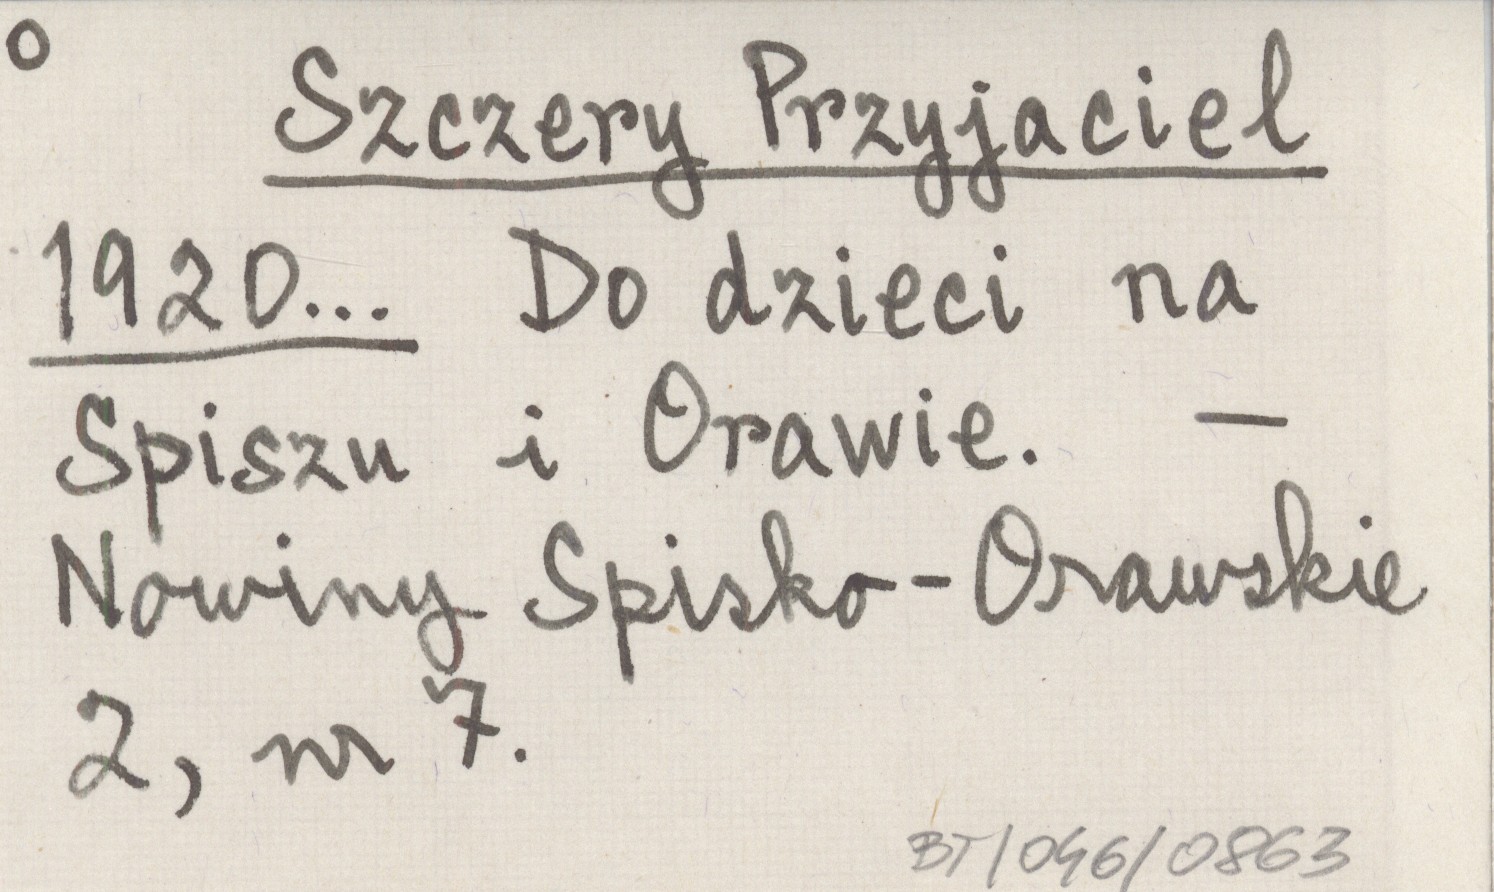 o
Szczery Przyjaciel
1920... Do dzieci na
Spiszu i Orawie. —
Nowiny Spisko-Orawskie
2, nr 7.
BT/046/0863